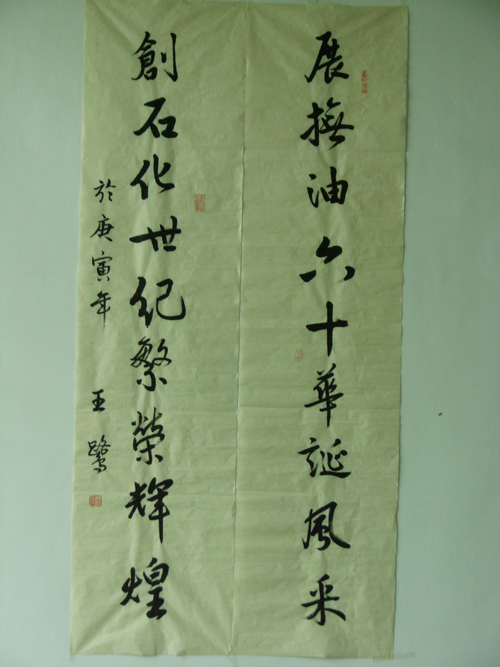 展撫油六十華誕風采
創石化世紀繁榮輝煌
於庚寅年 王鷺